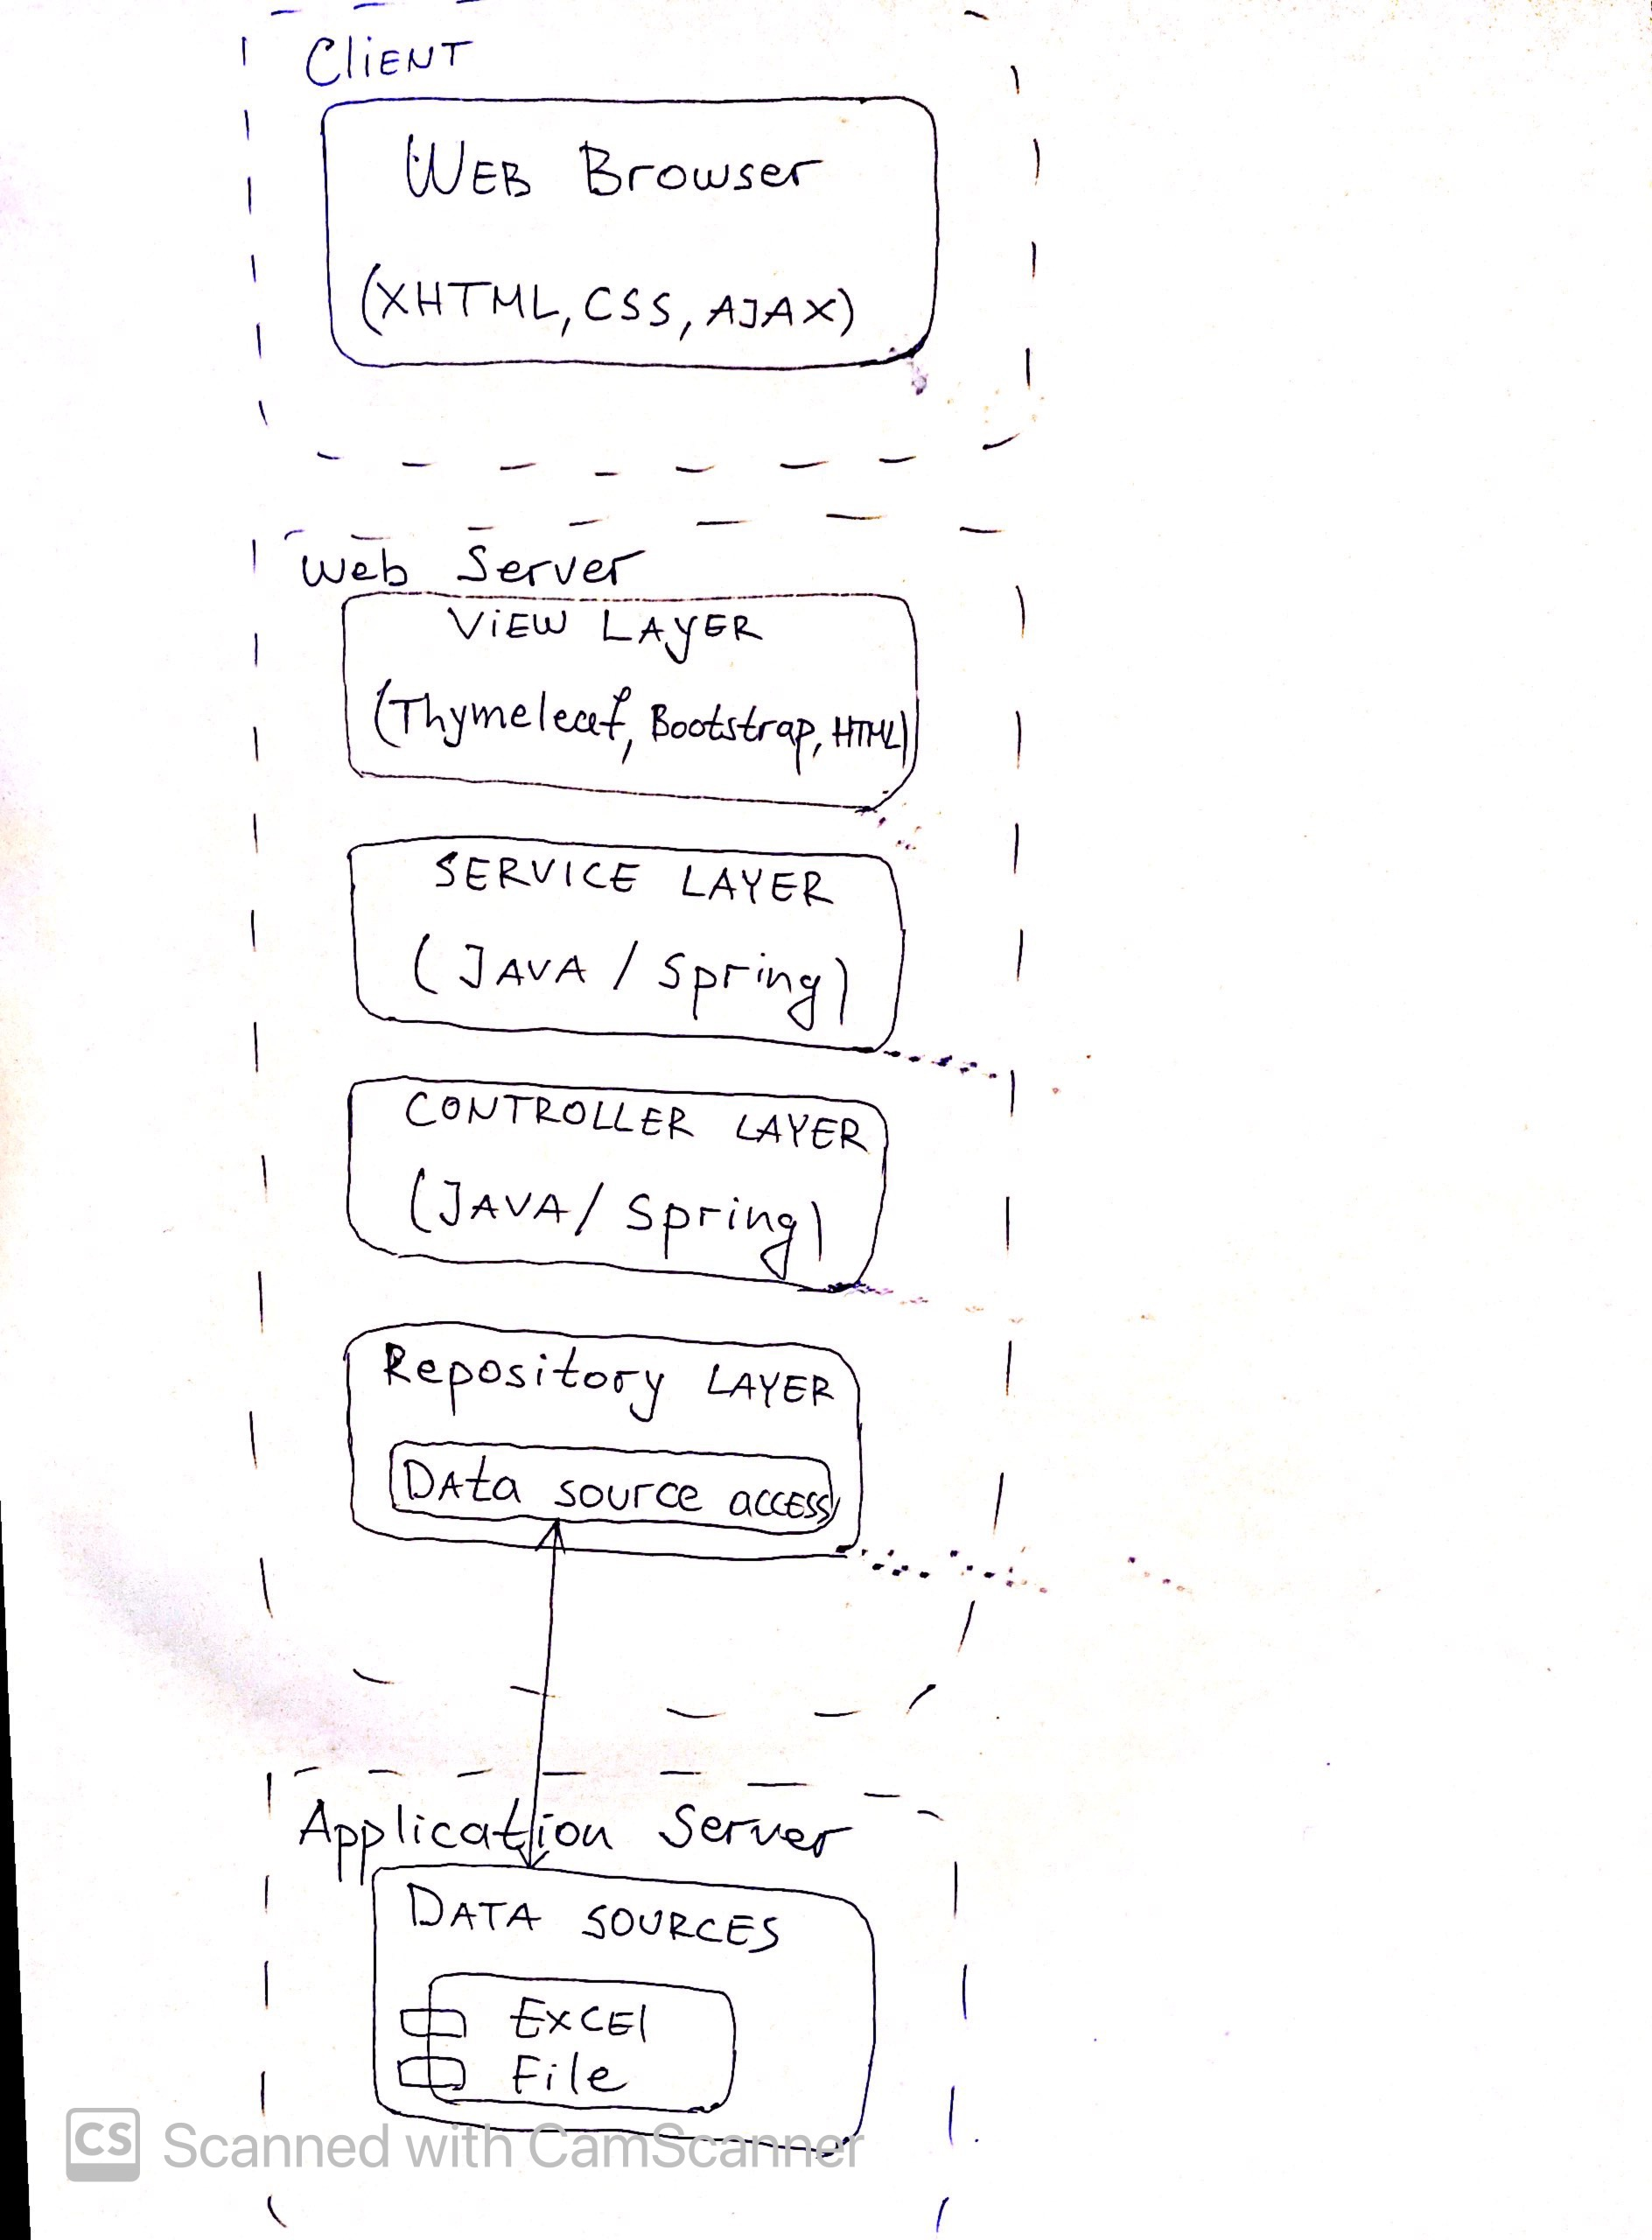 CLIENT
WEB Browser
(XHTML, CSS, AJAX)
Web Server
VIEW LAYER
(Thymeleaf, Bootstrap, HTML)
SERVICE LAYER
(JAVA / Spring)
CONTROLLER LAYER
(JAVA / Spring)
Repository LAYER
DAta source access
Application Server
DATA SOURCES
EXCEl
File
CS Scanned with CamScanner